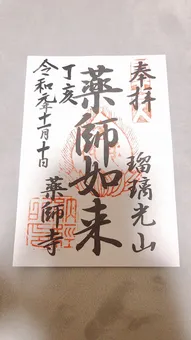 奉拝
瑠璃光山
薬師如来
丁亥
薬師寺
令和元年十一月十日